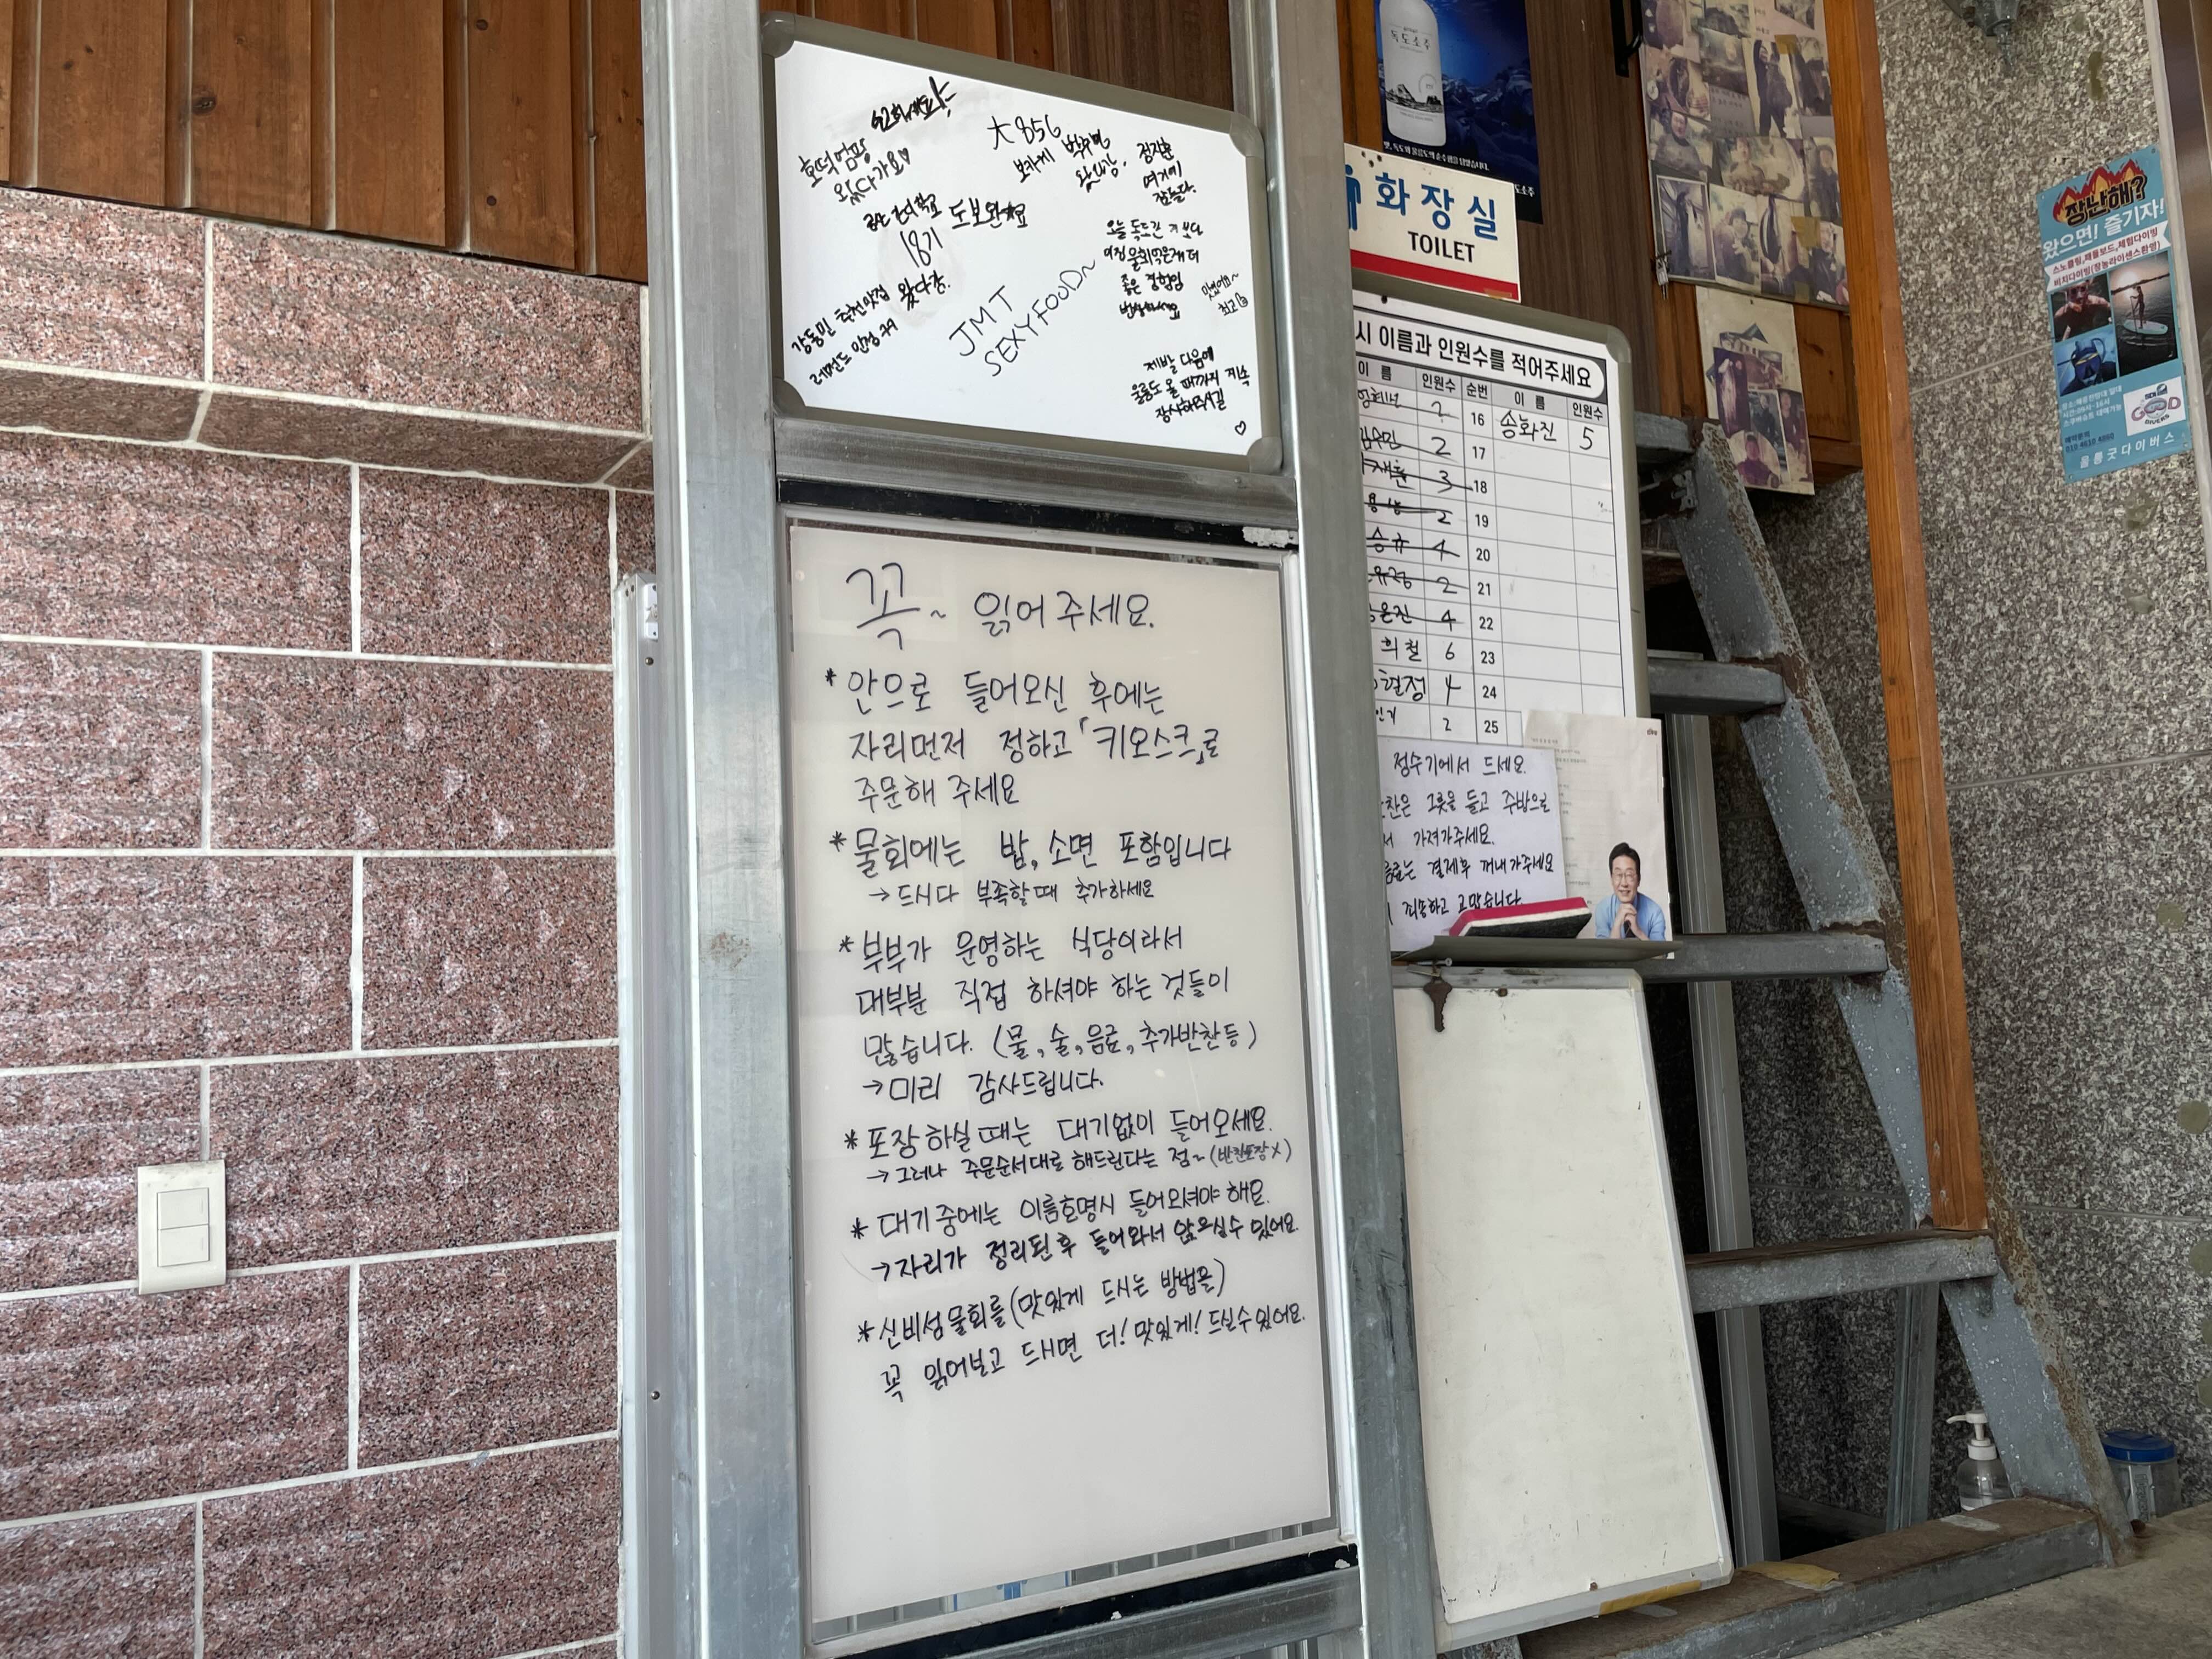 호떡엄마
왔다가요♡
大856
보라씨
왔다감.
정지훈
여기에
잠들다.
18기 도보완료
왔다감.
오늘 독도간 거 보다
여기 물회먹은게 더
좋은 경험임
번창하세요
맛있어요~
최고
강동민 추천맛집
레전드 인정 ㅋㅋ
JMT
SEXYFOOD~
제발 다음에
울릉도 올 때까지 계속
장사해주시길
♡
꼭~ 읽어주세요.
* 안으로 들어오신 후에는
자리먼저 정하고 「키오스크」로
주문해 주세요
* 물회에는 밥, 소면 포함입니다
→ 드시다 부족할때 추가하세요
* 부부가 운영하는 식당이라서
대부분 직접 하셔야 하는 것들이
많습니다. (물, 술, 음료, 추가반찬등)
→ 미리 감사드립니다.
* 포장하실때는 대기없이 들어오세요.
→ 그러나 주문순서대로 해드린다는 점~ (반찬포장X)
* 대기중에는 이름호명시 들어오셔야 해요.
→ 자리가 정리된후 들어와서 앉으실수 있어요.
* 신비섬물회를 (맛있게 드시는 방법을)
꼭 읽어보고 드시면 더! 맛있게! 드실수 있어요.
독도소주
화장실
TOILET
시 이름과 인원수를 적어주세요
이 름 인원수 순번 이 름 인원수
2 16 송화진 5
2 17
3 18
2 19
승규 4 20
2 21
은진 4 22
희철 6 23
현정 4 24
인기 2 25
정수기에서 드세요.
찬은 그릇을 들고 주방으로
서 가져가주세요.
음료는 결제후 꺼내가주세요
죄송하고 고맙습니다.
장난해?
왔으면! 즐기자!
스노클링,패들보드,체험다이빙
비치다이빙(장농라이센스환영)
GOOD
DIVERS
울릉굿다이버스